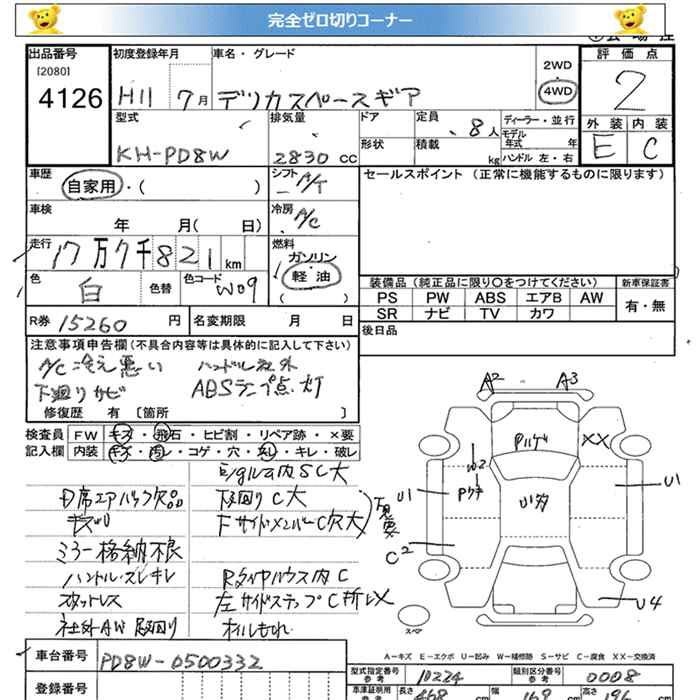 完全ゼロ切りコーナー
出品番号 初度登録年月 車名・グレード 評価点
[2080] 2WD
4126 H11 7月 デリカスペースギア 4WD 2
型式 排気量 ドア 定員 ディーラー・並行 外装 内装
8人 モデル年式 年 E C
KH-PD8W 2830 CC 形状 積載 kg ハンドル 左・右
車歴 シフト セールスポイント (正常に機能するものに限ります)
自家用・( ) A/T
車検 冷房
年 月( 日) A/C
走行 燃料
17万7千821km ガソリン
色 色替 色コード 軽油 装備品 (純正品に限り○をつけてください) 新車保証書
白 W09 ( ) PS PW ABS エアB AW 有・無
SR ナビ TV カワ
R券 15260円 名変期限 月 日 後日品
注意事項申告欄(不具合内容等は具体的に記入して下さい)
A/C冷え悪い ハンドル社外
下廻りサビ ABSランプ点灯
修復歴 有 [箇所 ]
検査員 FW キズ・飛石・ヒビ割・リペア跡・×要
記入欄 内装 キズ・汚レ・コゲ・穴・スレ・キレ・破レ
下廻りC大
下サイドメンバーC穴大
ミラー格納不良
ハンドルスレキレ
スタットレス
左サイドステップC
社外AW
オイルもれ
A2 A3
XX
W2
U1 U1
C2
U4
スペア
A-キズ E-エクボ U-凹み W-補修跡 S-サビ C-腐食 XX-交換済
車台番号 PD8W-0500332
型式指定番号 参考 10224 類別区分番号 参考 0008
登録番号 長さ 468 cm 幅 169 cm 高さ 196